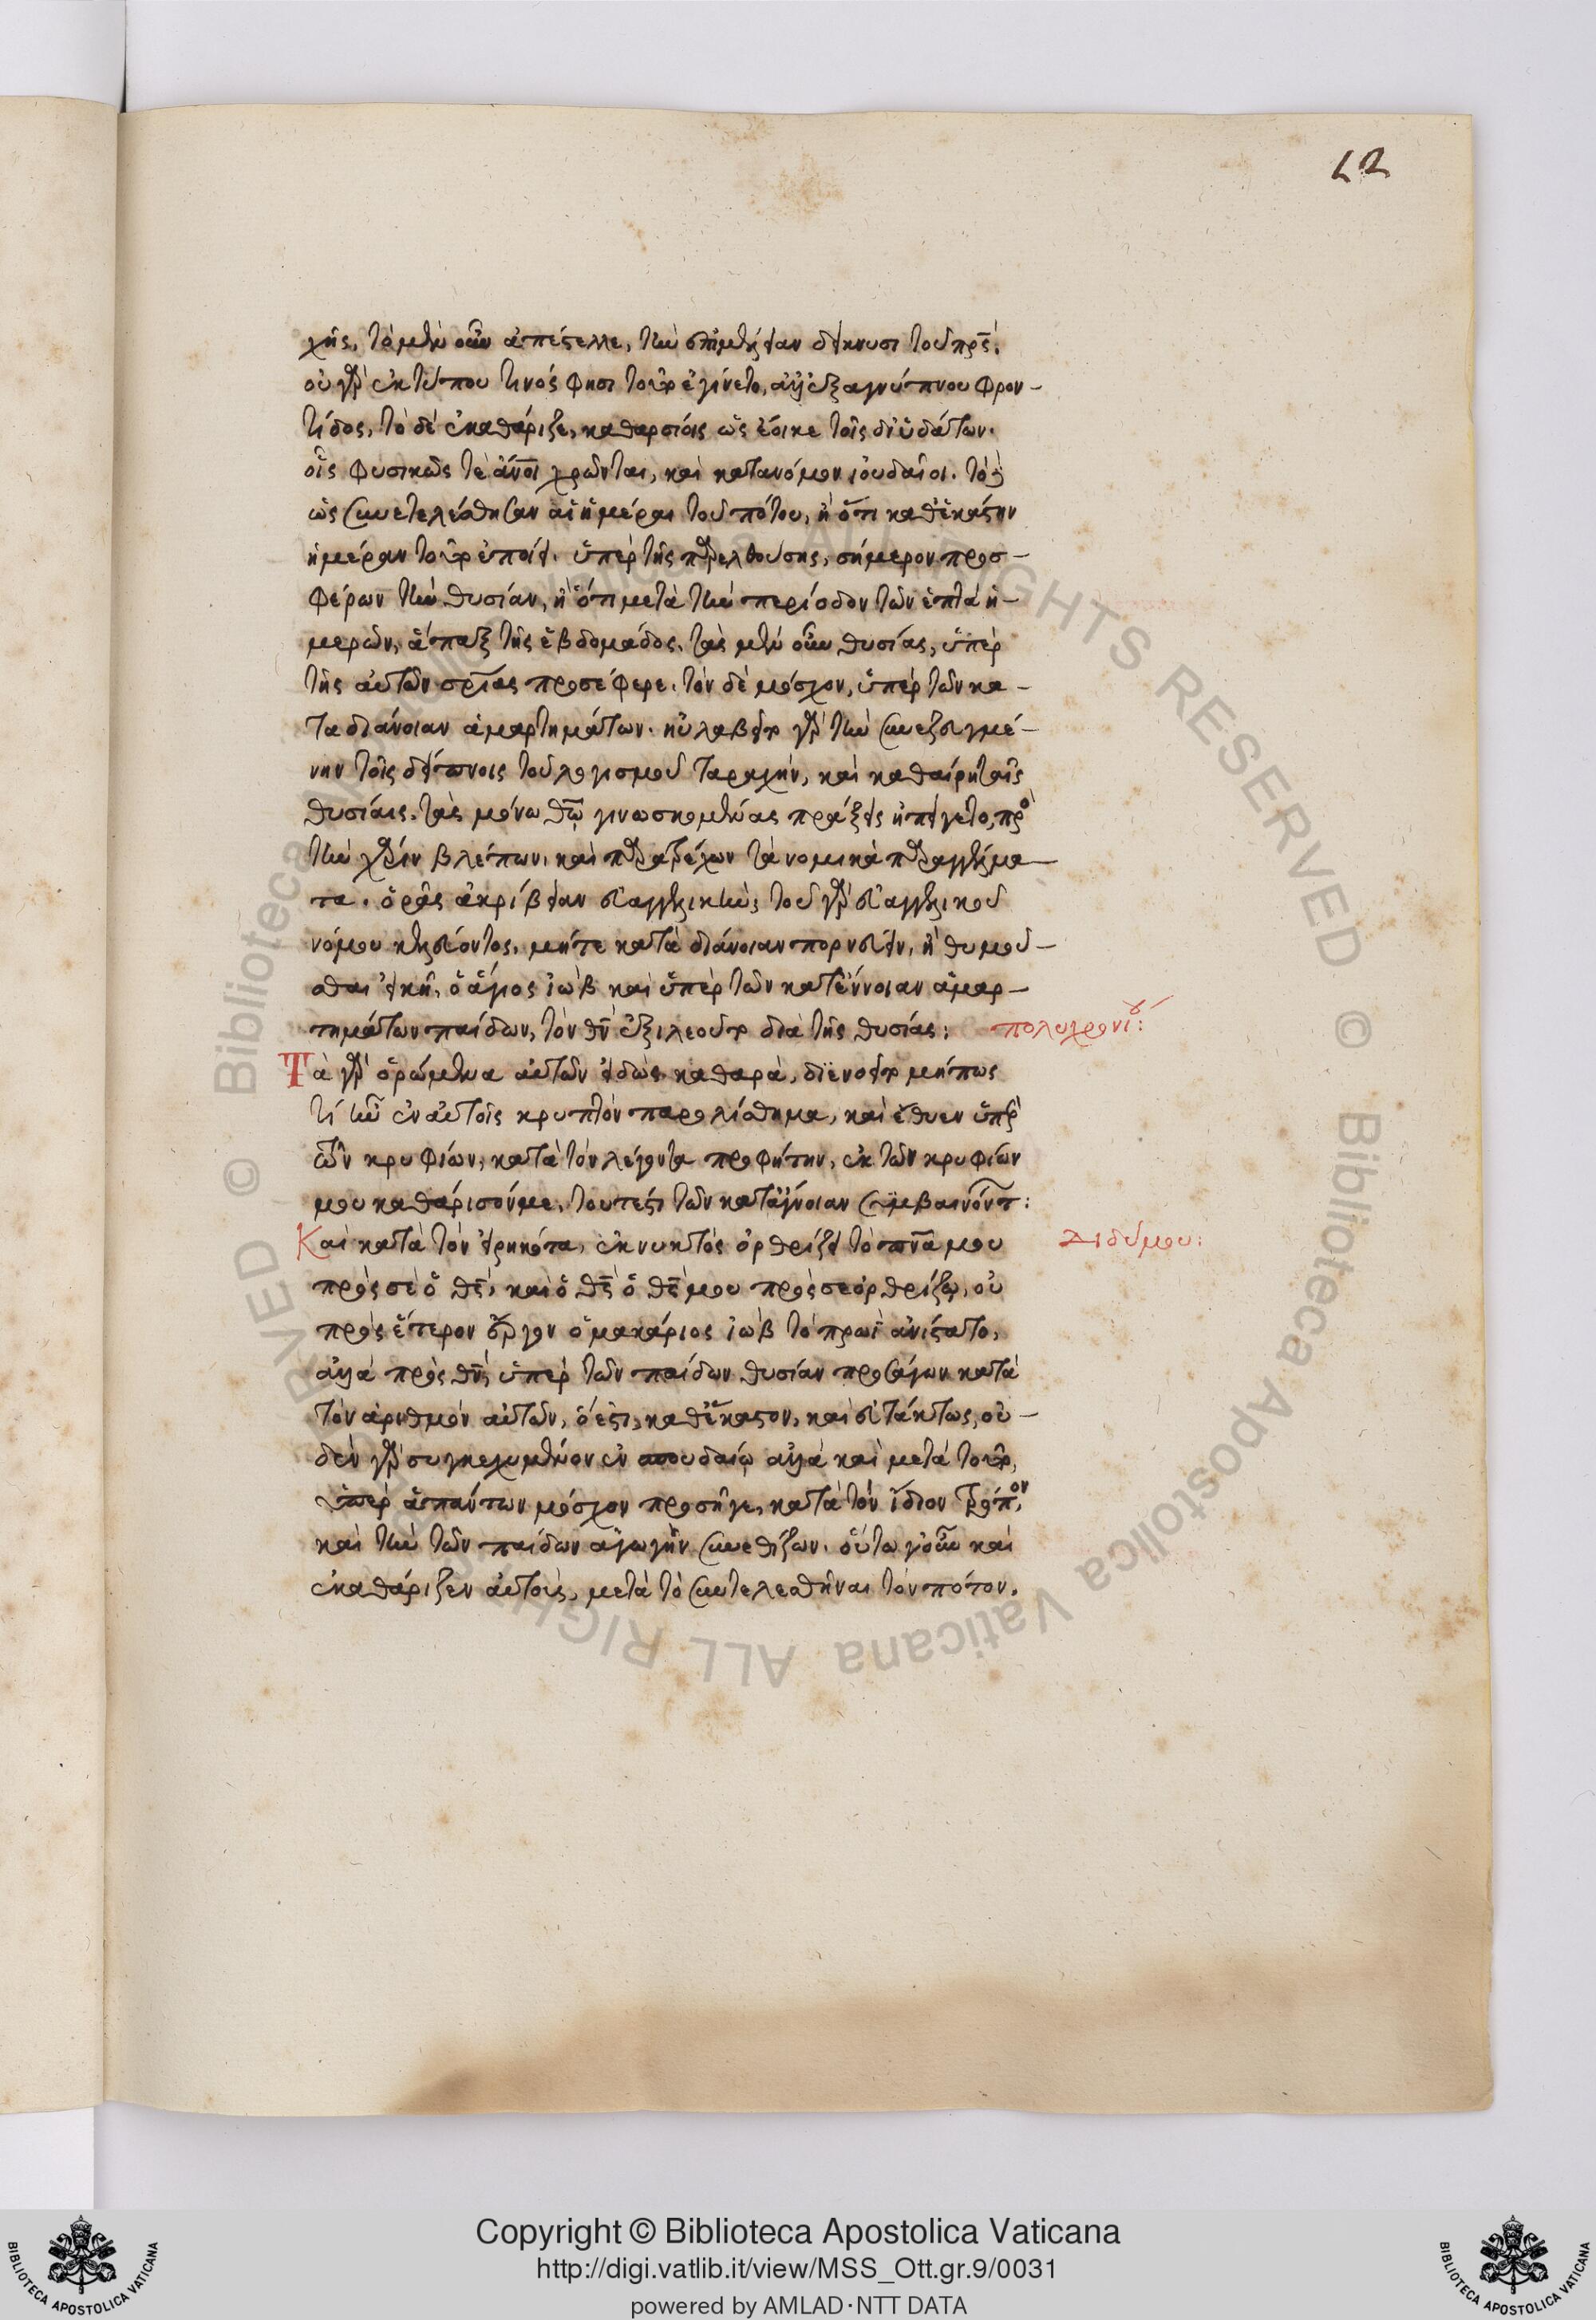 12
χῆς. τὸ μὲν οὖν ἀπέστελλε, τὴν ἐπιμέλειαν δείκνυσι τοῦ πρς.
οὐ γὰρ ἐκ τύπου τινός φησι τοῦτο ἐγίνετο, ἀλλ' ἐξ ἀγρύπνου φρον-
τίδος, τὸ δὲ ἐκαθάριζε, καθαρσίοις ὡς ἔοικε τοῖς δι' ὑδάτων.
οἷς φυσικῶς τὲ ἄνοι χρῶνται, καὶ κατανόμον ἰουδαῖοι. τὸ δὲ
ὡς συνετελέσθησαν αἱ ἡμέραι τοῦ πότου, ἢ ὅτι καθ' ἑκάστην
ἡμέραν τοῦτο ἐποίει. ὑπὲρ τῆς παρελθούσης, σήμερον προσ-
φέρων τὴν θυσίαν, ἢ ὅτι μετὰ τὴν περίοδον τῶν ἑπτὰ ἡ-
μερῶν, ἅπαξ τῆς ἑβδομάδος. τὰς μὲν οὖν θυσίας, ὑπὲρ
τῆς αὐτῶν σρίας προσέφερε. τὸν δὲ μόσχον, ὑπὲρ τῶν κα-
τα διάνοιαν ἁμαρτημάτων. ηὐλαβεῖτο γὰρ τὴν συνεζευγμέ-
νην τοῖς δείπνοις τοῦ λογισμοῦ ταραχήν, καὶ καθαίρη ταῖς
θυσίαις. τὰς μόνω θῷ γινωσκομένας πράξεις ἠπείγετο, πρὸ
τὴν χάριν βλέπων, καὶ παρατρέχων τὰ νομικὰ παραγγέλμα-
τα. ὁρᾷς ἀκρίβειαν εὐαγγελικήν; τοῦ γὰρ εὐαγγελικοῦ
νόμου κελεύοντος, μήτε κατὰ διάνοιαν πορνεύειν, ἢ θυμοῦ-
σθαι εἰκῆ, ὁ ἅγιος ἰὼβ καὶ ὑπὲρ τῶν κατ' ἔννοιαν ἁμαρ-
τημάτων παίδων, τὸν θν ἐξιλεοῦτο διὰ τῆς θυσίας: πολυχρονίου:
Τὰ γὰρ ὁρώμενα αὐτῶν εἰδὼς καθαρὰ, διενοεῖτο μήπως
τί ἦν ἐν αὐτοῖς κρυπτὸν παρολίσθημα, καὶ ἔθυεν ὑπὲρ
τῶν κρυφίων, κατὰ τὸν λέγοντα προφήτην, ἐκ τῶν κρυφίων
μου καθάρισόν με, τουτέστι τῶν κατ' ἄγνοιαν συμβαινόντ:
Καὶ κατὰ τὸν εἰρηκότα, ἐκ νυκτὸς ὀρθρίζει τὸ πνα μου διδύμου:
πρὸς σὲ ὁ θς, καὶ ὁ θς ὁ θς μου πρὸς σε ὀρθρίζω, οὐ
πρὸς ἕτερον ἔργον ὁ μακάριος ἰὼβ τὸ πρωῒ ἀνίστατο,
ἀλλὰ πρὸς θν, ὑπὲρ τῶν παίδων θυσίαν προσάγων κατὰ
τὸν ἀριθμὸν αὐτῶν, ὅ ἐστι, καθ' ἕκαστον, καὶ εὐτάκτως, οὐ-
δὲν γὰρ συγκεχυμένον ἐν σπουδαίῳ ἀλλὰ καὶ μετὰ τοῦτο,
ὑπὲρ ἁπάντων μόσχον προσῆγε, κατὰ τὸν ἴδιον τρόπον,
καὶ τὴν τῶν παίδων ἀγωγὴν συνεθίζων. οὕτω γοῦν καὶ
ἐκαθάριζεν αὐτοὺς, μετὰ τὸ συντελεσθῆναι τὸν πότον.
Copyright © Biblioteca Apostolica Vaticana
http://digi.vatlib.it/view/MSS_Ott.gr.9/0031
powered by AMLAD·NTT DATA
BIBLIOTECA APOSTOLICA VATICANA
BIBLIOTECA APOSTOLICA VATICANA
© Biblioteca Apostolica Vaticana ALL RIGHTS RESERVED
© Biblioteca Apostolica Vaticana ALL RIGHTS RESERVED